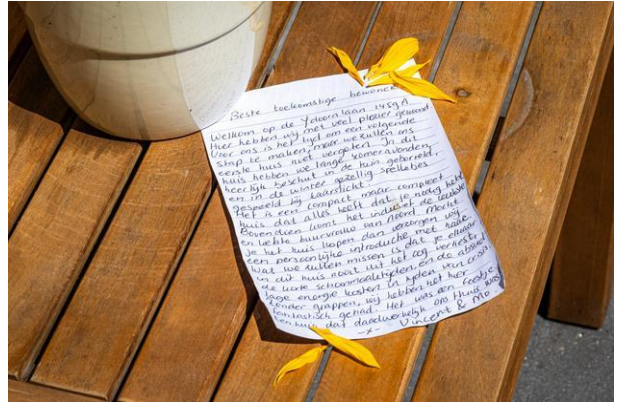 Beste toekomstige bewoner
Welkom op de Ydoornlaan
Hier hebben wij met veel plezier gewoond
Voor ons is het tijd om een volgende
stap te maken, maar we zullen ons
eerste huis niet vergeten. In dit
huis hebben we lange zomeravonden,
heerlijk beschut in de tuin geborreld,
en in de winter gezellig spelletjes
gespeeld bij kaarslicht.
Het is een compact maar compleet
huis dat alles heeft dat je nodig hebt
Bovendien komt het inclusief de leukste
en liefste buurvrouw van Noord. Mocht
je het huis kopen dan verzorgen wij
een persoonlijke introductie met haar.
Wat we zullen missen is dat je elkaar
in dit huis nooit uit het oog verliest,
de korte schoonmaaktijden, en de absurd
lage energie kosten in tijden van crisis
Zonder grappen, wij hebben het hier
fantastisch gehad. Het was een feestje
een huis dat daadwerkelijk ons thuis was
-x- Vincent & Mo